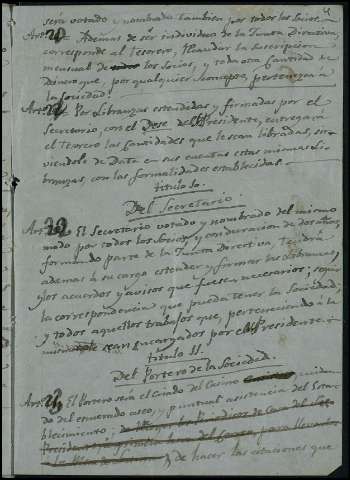 será votado y nombrado tambien por todos los Socios.
Art. 20 Además de ser individuo de la Junta Directiva
corresponde al tesorero, Recaudar la suscripcion
mensual de todos los Socios, y toda otra Cantidad de
dinero que, por qualquier concepto, pertenezca á
la Sociedad.
Art. 21 Por Libranzas estendidas y firmadas por el
Secretario, con el Dese del Presidente, entregará
el tesorero las Cantidades que le sean libradas, sir-
viendole de Data en sus cuentas estas mismas Li-
branzas, con las formalidades establecidas.
titulo 10.
Del Secretario
Art. 22 El Secretario votado y nombrado del mismo
modo por todos los Socios, y con duracion de dos años,
formando parte de la Junta Directiva, tendrá
ademas á su cargo estender y firmar las Libranzas,
y los acuerdos y avisos que fuesen necesarios; seguir
la correspondencia que pueda tener la Sociedad;
y todos aquellos trabajos que, perteneciendo á la
misma le sean Encargados por el Presidente.
titulo 11.
Del Portero de la Sociedad.
Art. 23 El Portero será el Criado del Casino cuidan-
do del esmerado aseo, y puntual asistencia del Esta-
blecimiento; de
Presidente
de hacer las citaciones que